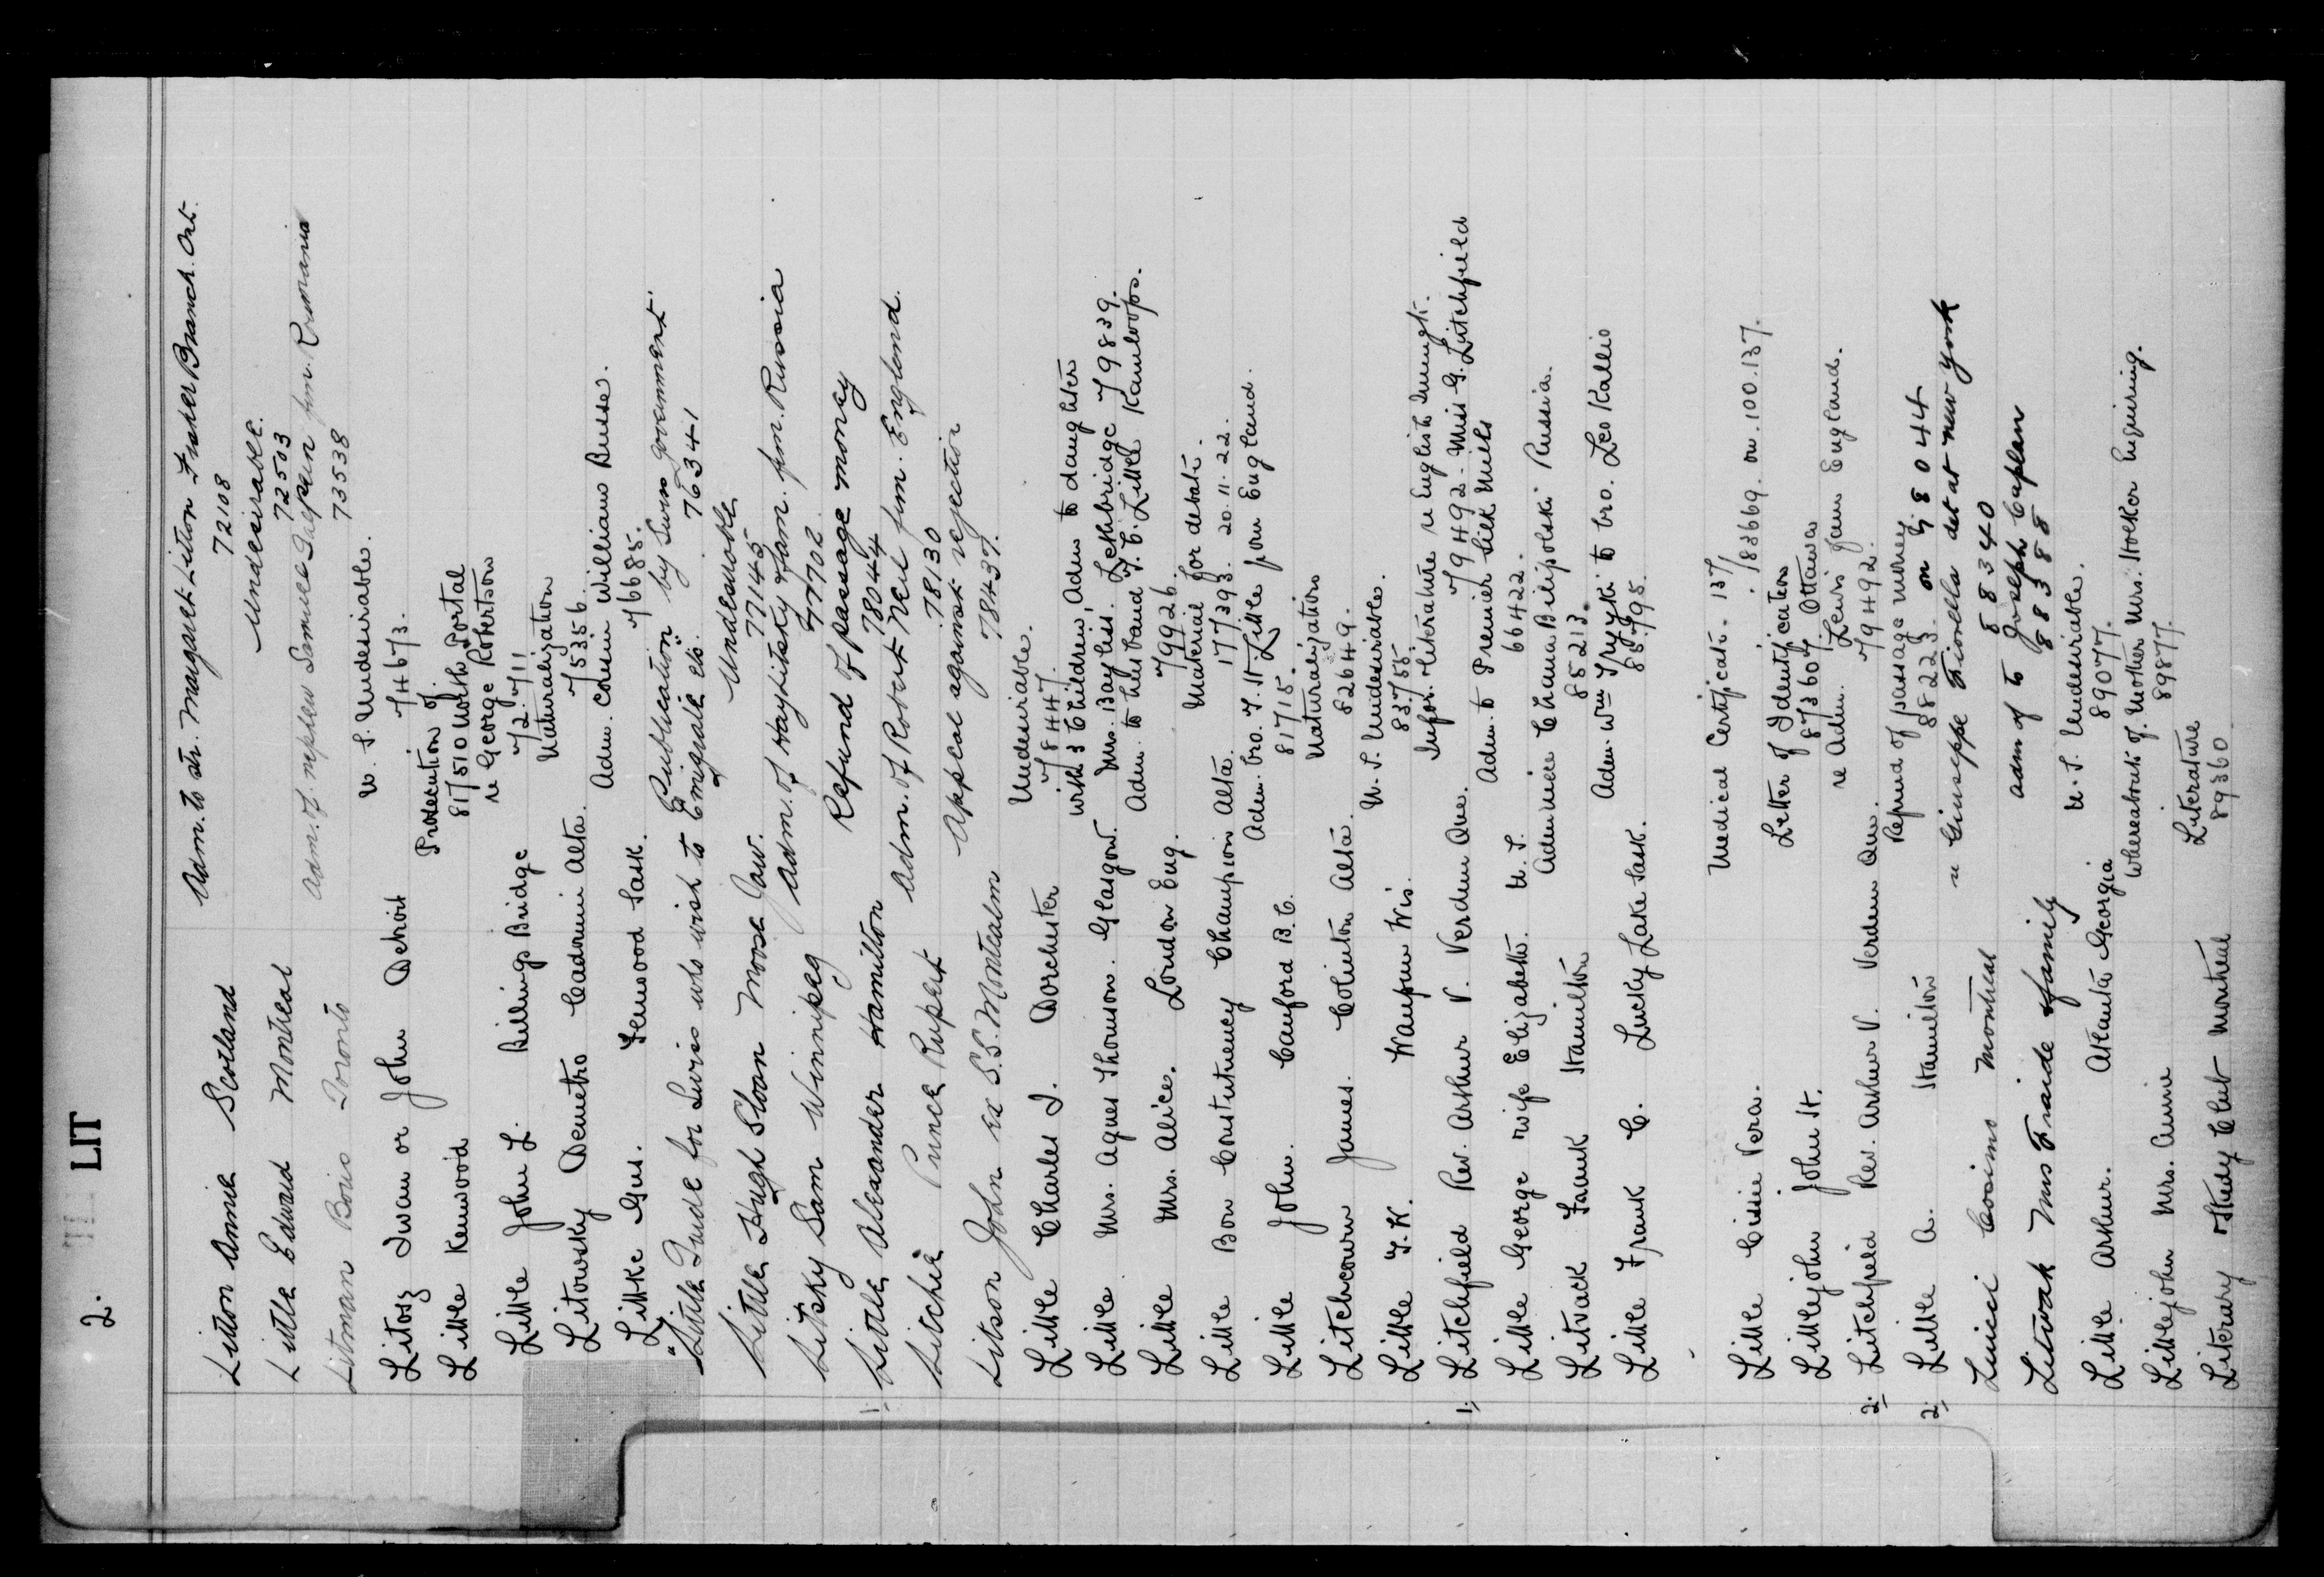 2. LIT
Litton Annie Scotland Adm. to str. Margaret Litton Fraser Branch. Ont.
72108
Little Edward Montreal Undesirable.
72503
Litman Boris Toronto Adm. of nephew fm. Roumania
73538
Litosz Iwan or John Detroit U.S. Undesirable.
74673.
Little Kenwood Prosecution of.
817510 North Portal
re George Robertson
72711
Little John L. Billings Bridge Naturalization
75356.
Litowsky Demetro Cadomin Alta. Adm. cousin William Russe.
76685.
Littke Gus. Fenwood Sask.
"Little Guide for Swiss who wish to Emigrate etc." Publication by Swiss government
76341
Little Hugh Sloan Moose Jaw. Undesirable
77145
Litsky Sam Winnipeg Adm. of Haylitsky fam. fm. Russia
77702
1. Little Alexander Hamilton Refund of passage money
78044
Litchie Prince Rupert Adm. of Robert Neil fm. England.
78130
Litson John ex S.S. Montcalm Appeal against rejection
78437.
Little Charles J. Dorchester Undesirable.
78447.
Little Mrs. Agnes Thomson. Glasgow. with 3 Children, Adm to daughter
Mrs. Bayless. Lethbridge 79839.
Little Mrs. Alice. London Eng. Adm. to husband T. C. Little Kamloops.
79926.
Little Bow Constituency Champion Alta. Material for debate.
177393. 20.11.22.
Little John. Canford B.C. Adm. bro. T. H. Little from England.
81715.
Litchcourn James. Colinton Alta. Naturalization
82649.
Little T. W. Waupun Wis. U.S. Undesirable.
83755.
1. Litchfield Rev. Arthur V. Verdun Que. Infor. literature re English Immigts.
79492. Miss G. Litchfield
Little George wife Elizabeth. U.S. Adm. to Premier Silk Mills
66422.
Litvack Frank Hamilton Adm niece Chana Bilipolski Russia.
85213.
Little Frank C. Lucky Lake Sask. Adm. Wm to bro. Leo Kallio
85795.
Little Cissie Vera. Medical Certificate. 137/
183669. on. 100.137.
Littlejohn John H. Letter of Identification
873607 Ottawa
2. Litchfield Rev. Arthur V. Verdun Que. re Adm. Lewis from England.
79492.
2. Little A. Hamilton Refund of passage money
88223. on 78044
Luicci Cosimo Montreal re Giuseppe Fiorella det at new york
88340
Litwak Mrs Fraide & family adm of to Joseph Caplan
88388
Little Arthur. Atlanta Georgia U.S. Undesirable.
89077.
Littlejohn Mrs. Annie Whereabouts of. Mother Mrs. Stocker Enquiring.
89877.
Literary & Study Club Montreal Literature
89360